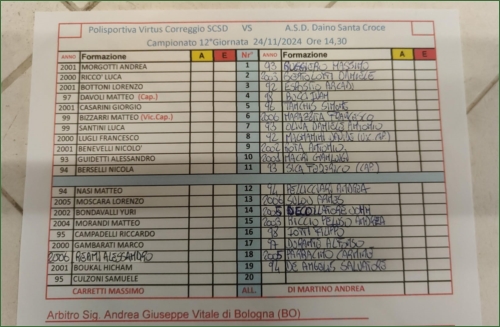 Polisportiva Virtus Correggio SCSD VS A.S.D. Daino Santa Croce
Campionato 12°Giornata 24/11/2024 Ore 14,30
ANNO Formazione A E Nr° ANNO Formazione A E
2001 MORGOTTI ANDREA 1 93
2000 RICCO' LUCA 2 2003
2001 BOTTONI LORENZO 3 92
97 DAVOLI MATTEO (Cap.) 4 98
2001 CASARINI GIORGIO 5 96 SIMONE
99 BIZZARRI MATTEO (Vic.Cap.) 6 2006 FRANCESCO
99 SANTINI LUCA 7 93 OLIVA DANIELE ANTONIO
2000 LUGLI FRANCESCO 8 92
2001 BENEVELLI NICOLO' 9 2006 ANTONIO
93 GUIDETTI ALESSANDRO 10 2002 MACRI GIANLUIGI
94 BERSELLI NICOLA 11 93 SICA FEDERICO (CAP)
94 NASI MATTEO 12 94 PELLICCIARI ANDREA
2005 MOSCARA LORENZO 13 2006
2002 BONDAVALLI YURI 14 2005 JOHN
2004 MORANDI MATTEO 15 2003 RICCIO ANDREA
95 CAMPADELLI RICCARDO 16 98 FILIPPO
2000 GAMBARATI MARCO 17 97 DURANTE ALFONSO
2006 ALESSANDRO 18 2005 CARMINE
2001 BOUKAL HICHAM 19 94 DE ANGELIS SALVATORE
95 CULZONI SAMUELE 20
CARRETTI MASSIMO ALL. DI MARTINO ANDREA
Arbitro Sig. Andrea Giuseppe Vitale di Bologna (BO)